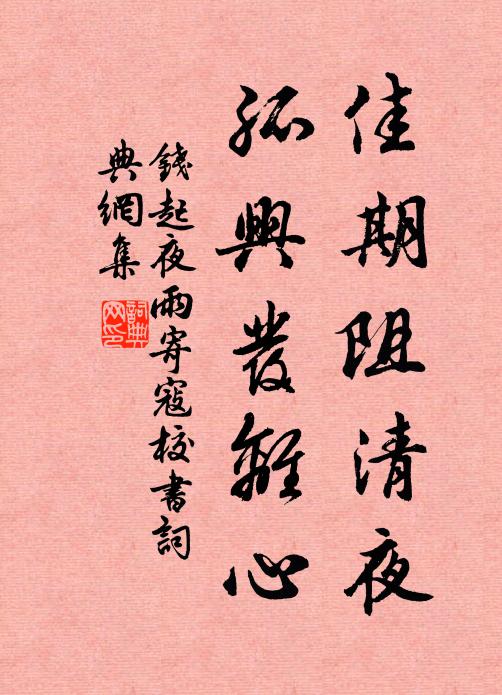 佳期阻清夜
孤興發離心
錢起夜雨寄寇校書詞
典網集
詞典
网印